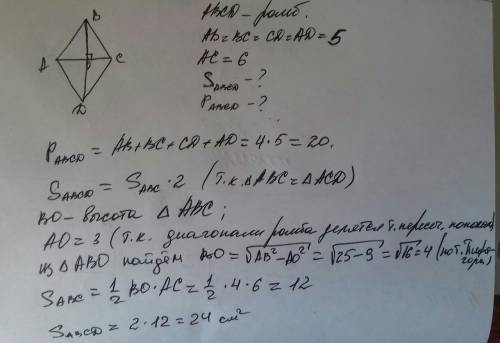 B
A
C
O
D
ABCD - ромб.
AB = BC = CD = AD = 5
AC = 6
S ABCD - ?
P ABCD - ?
P ABCD = AB + BC + CD + AD = 4 · 5 = 20.
S ABCD = S ABC · 2 (т.к. △ABC = △ACD)
BO - высота △ ABC;
AO = 3 (т.к. диагонали ромба делятся т. пересеч. пополам)
из △ABO найдем BO = √AB² - AO² = √25 - 9 = √16 = 4 (по т. Пифагора)
S ABC = 1/2 BO · AC = 1/2 · 4 · 6 = 12
S ABCD = 2 · 12 = 24 см²